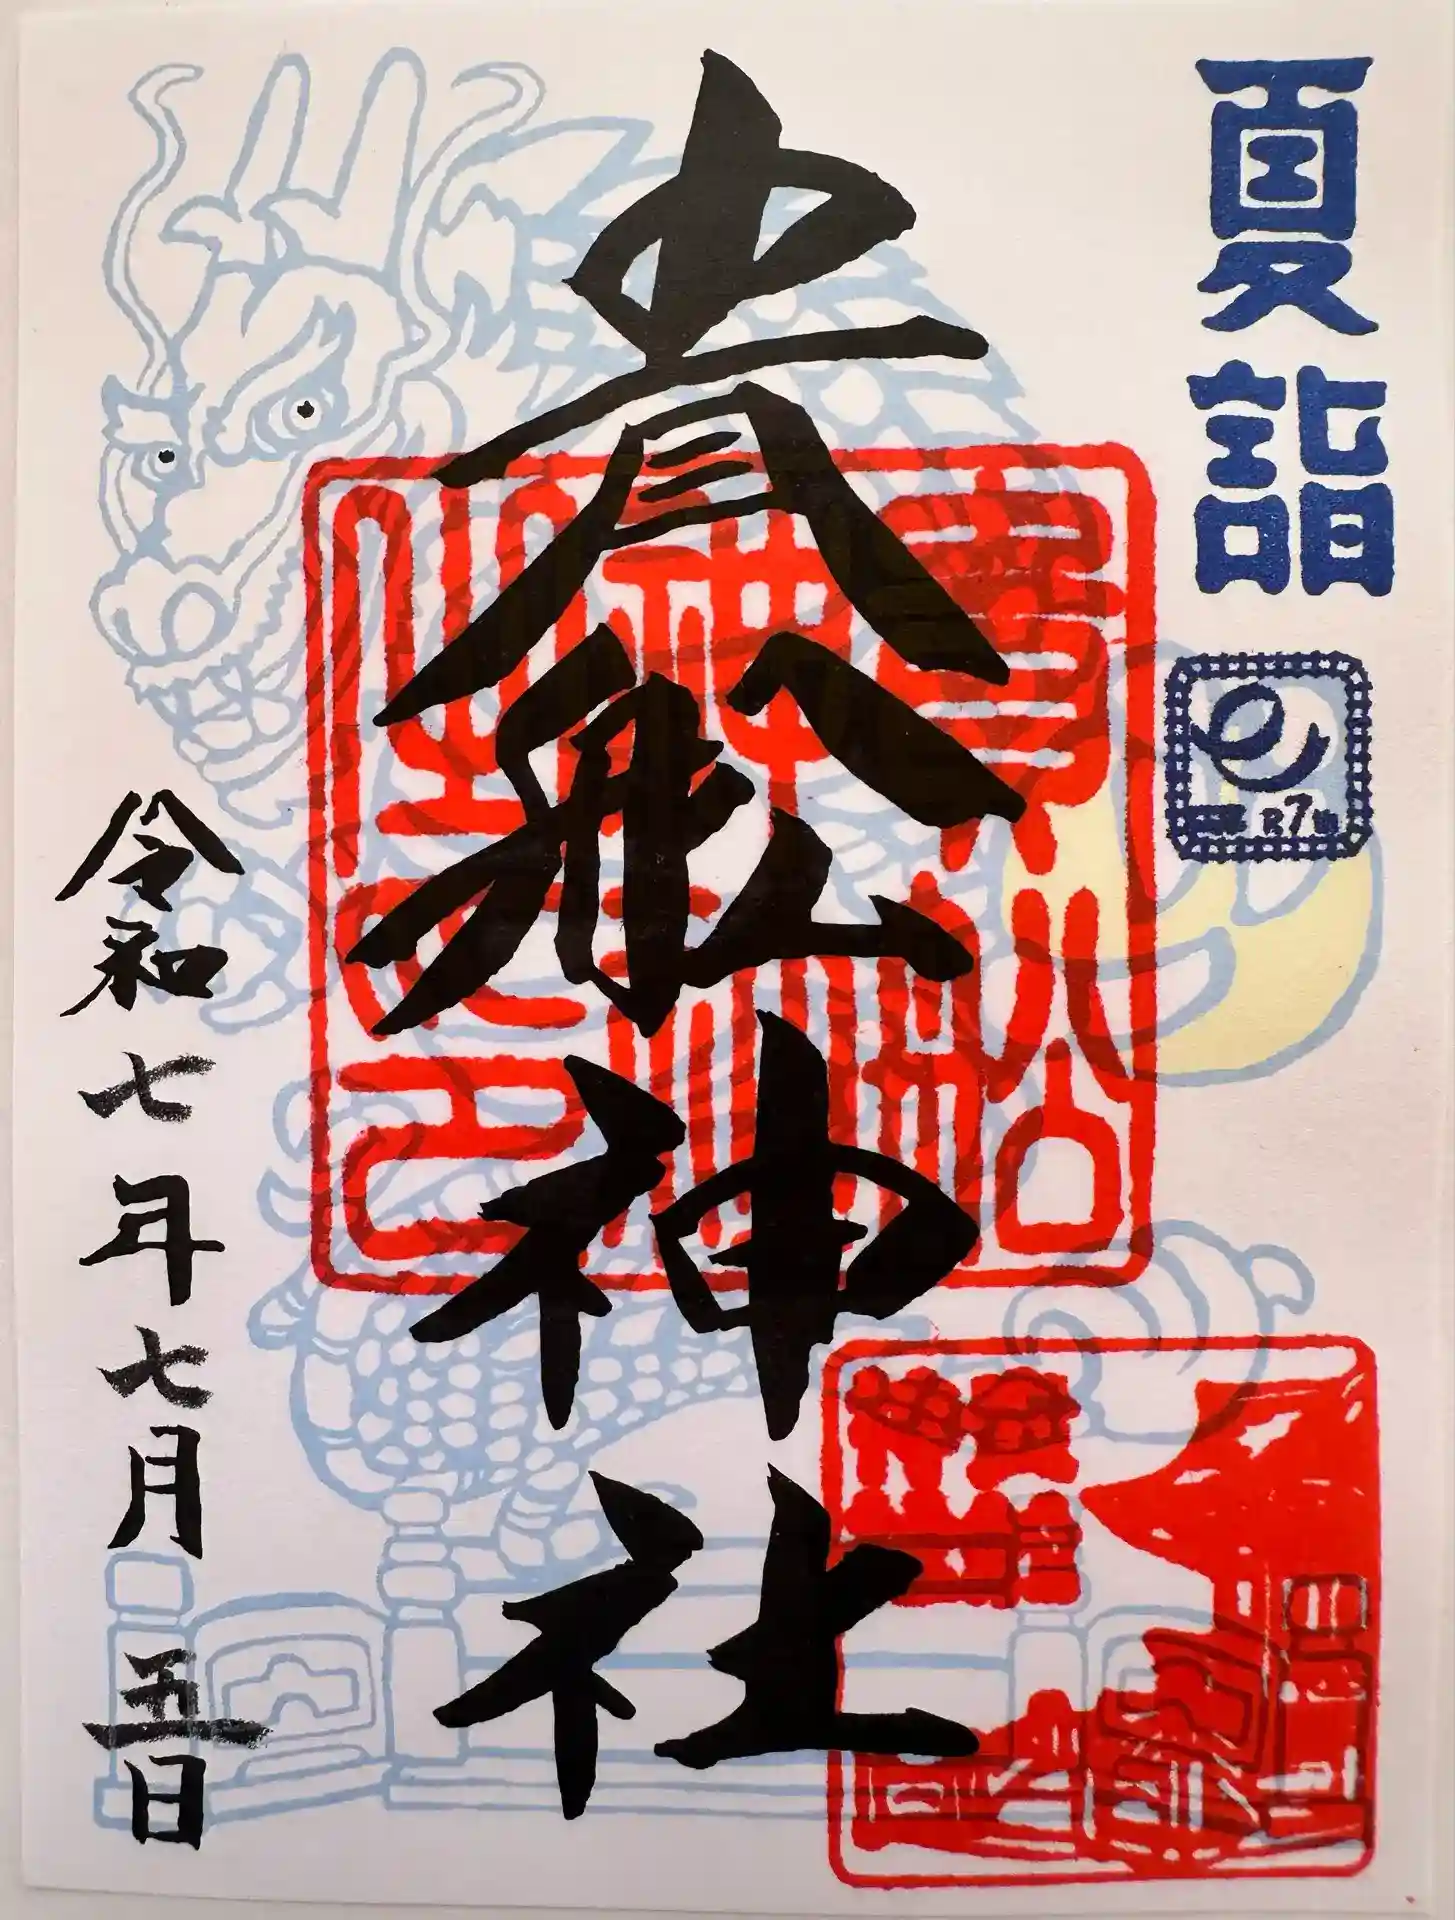 夏詣
R7
貴舩神社
令和七年七月五日